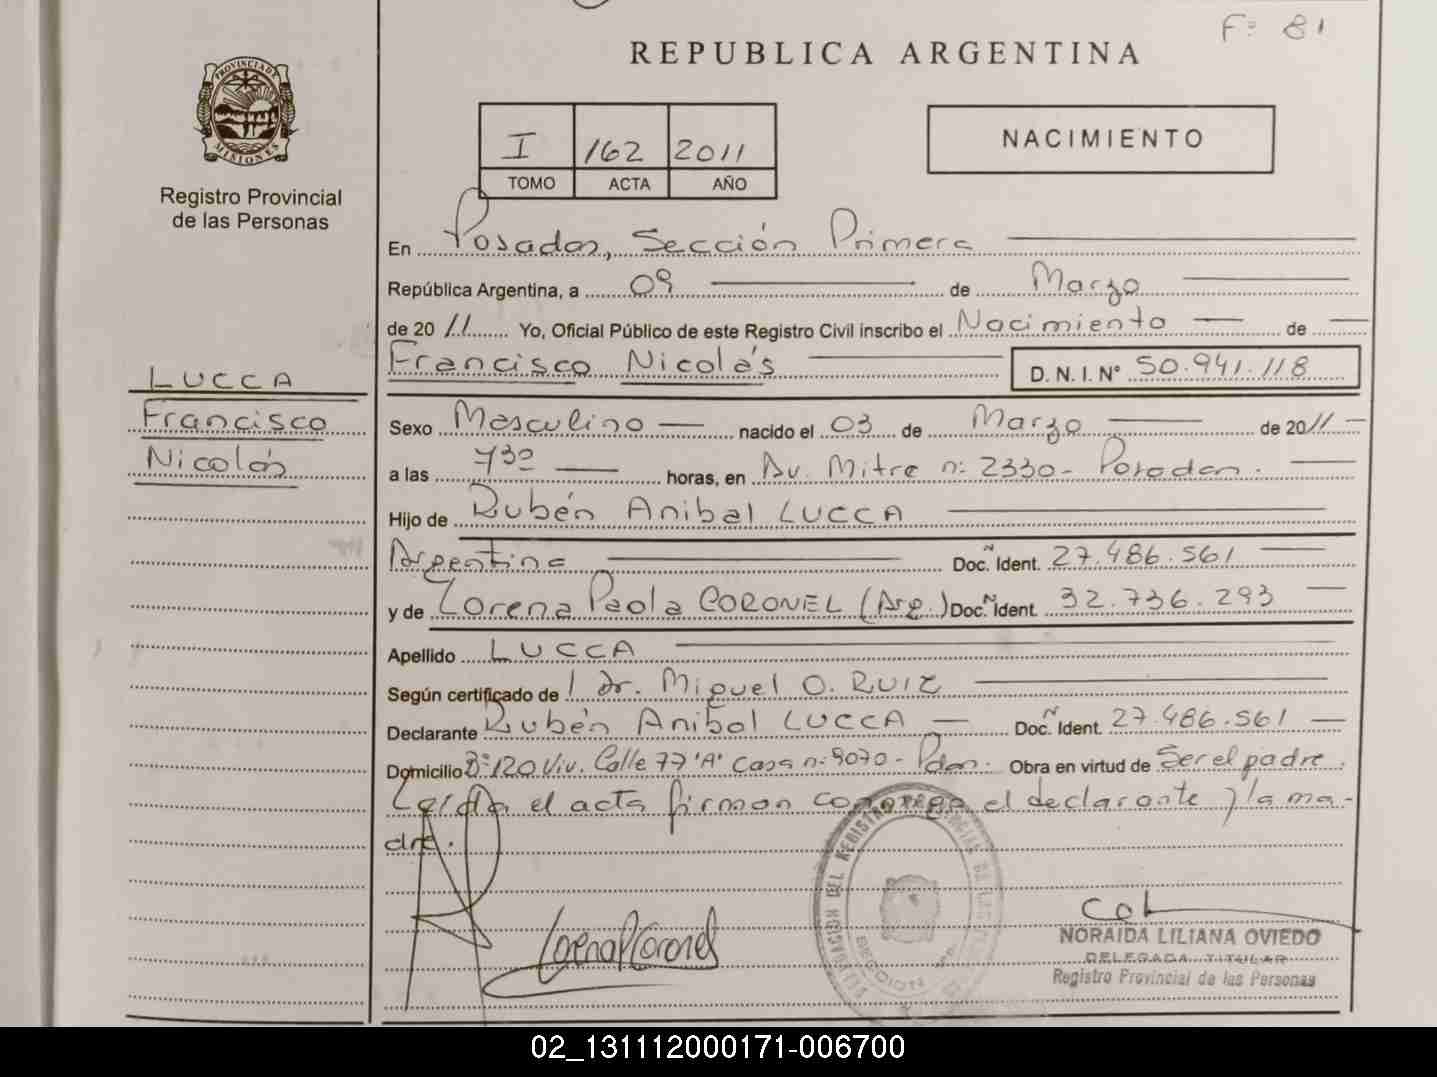 F: 81
REPUBLICA ARGENTINA
PROVINCIA DE
MISIONES
Registro Provincial
de las Personas
I 162 2011
TOMO ACTA AÑO
NACIMIENTO
En Posadas, Sección Primera
República Argentina, a 09 de Marzo
de 2011 Yo, Oficial Público de este Registro Civil inscribo el Nacimiento de
Francisco Nicolás D. N. I. N° 50.941.118
LUCCA
Francisco
Nicolás
Sexo Masculino nacido el 03 de Marzo de 2011
a las 730 horas, en Av. Mitre n: 2330- Posadas.
Hijo de Rubén Anibal LUCCA
Argentina Doc. N Ident. 27.486.561
y de Lorena Paola CORONEL (Arg.) Doc. N Ident. 32.736.293
Apellido LUCCA
Según certificado de l Dr. Miguel O. RUIZ
Declarante Rubén Anibal LUCCA Doc. N Ident. 27.486.561
Domicilio B° 120 Viv. Calle 77 'A' Casa n: 9070 - Pdas. Obra en virtud de Ser el padre.
Leída el acta firman conmigo el declarante y la ma-
dre.
Lorena P Coronel
SECCION 1ra
NORAIDA LILIANA OVIEDO
DELEGADA TITULAR
Registro Provincial de las Personas
02_131112000171-006700